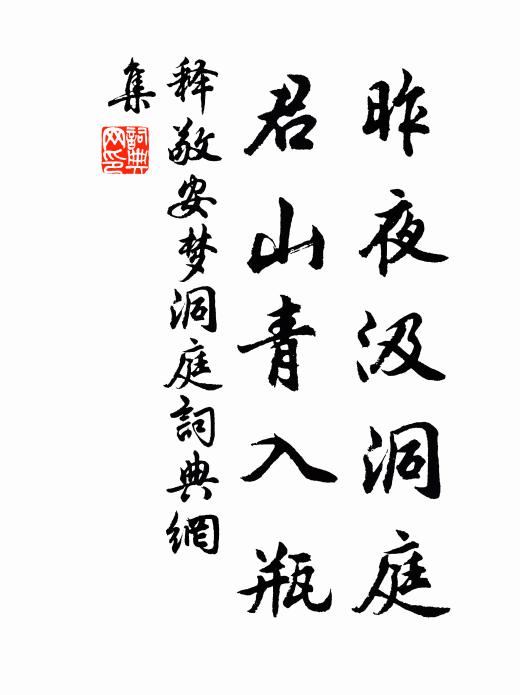 昨夜汲洞庭
君山青入瓶
释敬安梦洞庭詞典網
集
詞典網印